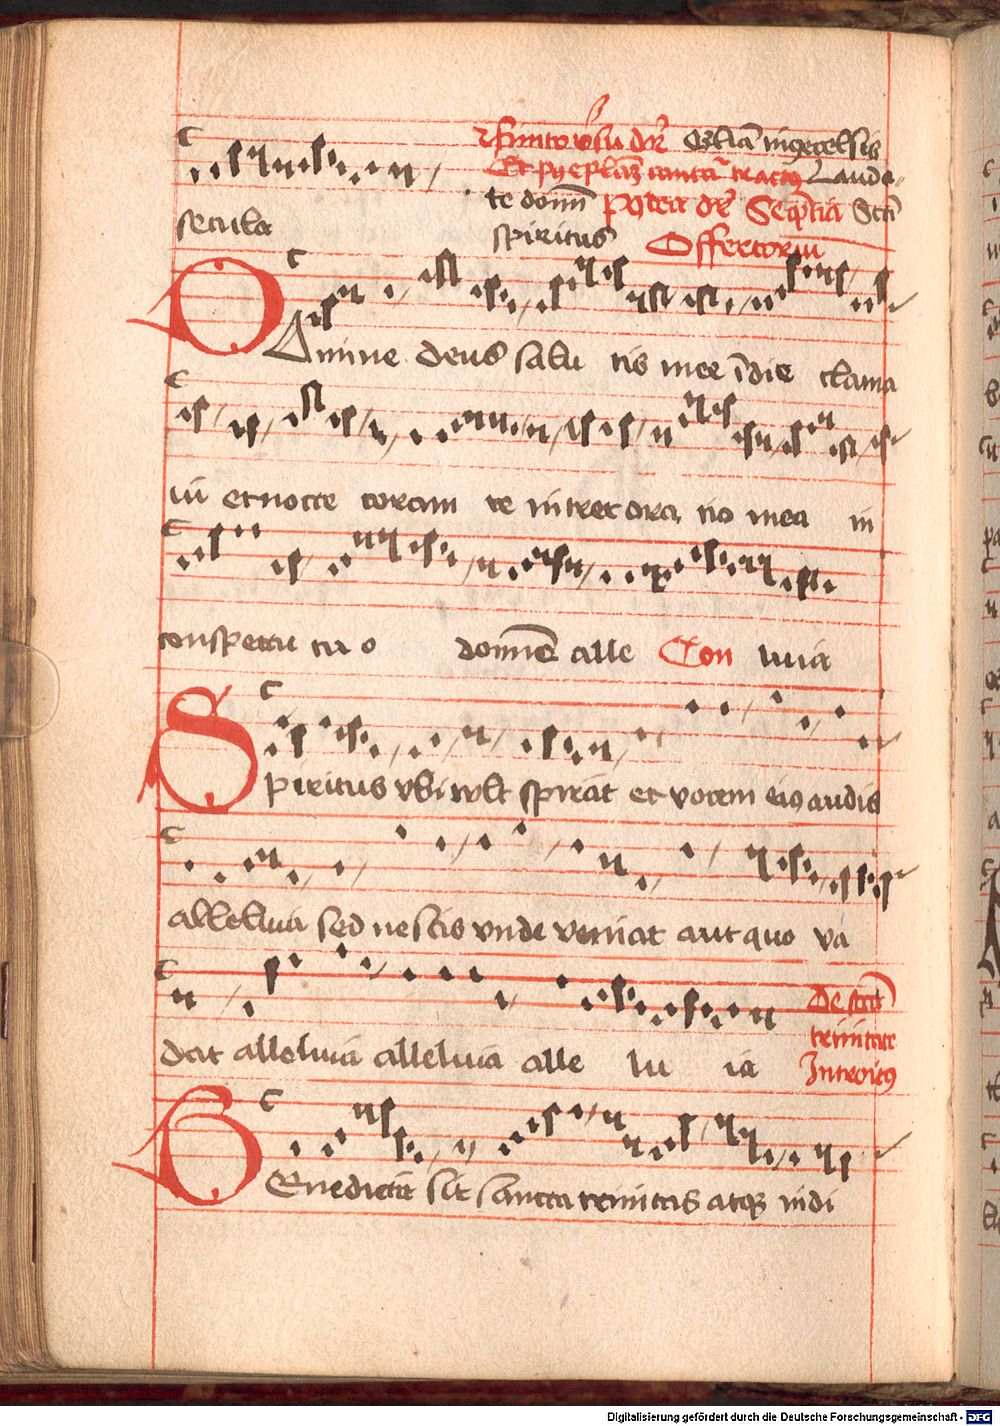 Gloria in excelsis
Lauda
te domin
Sequentia Scti
secula
spiritus
Offertorium
Domine deus salu tis mee i die clama
ui et nocte coram te intret ora tio mea in
conspectu tu o domine alle Con luuia
Spiritus vbi vult spirat et vocem eius audis
alleluia sed nescis vnde veniat aut quo va
dat alleluia alleluia alle lu ia
De scta
trinitate
Introitus
Benedicta sit sancta trinitas atque indi
Digitalisierung gefördert durch die Deutsche Forschungsgemeinschaft - DFG